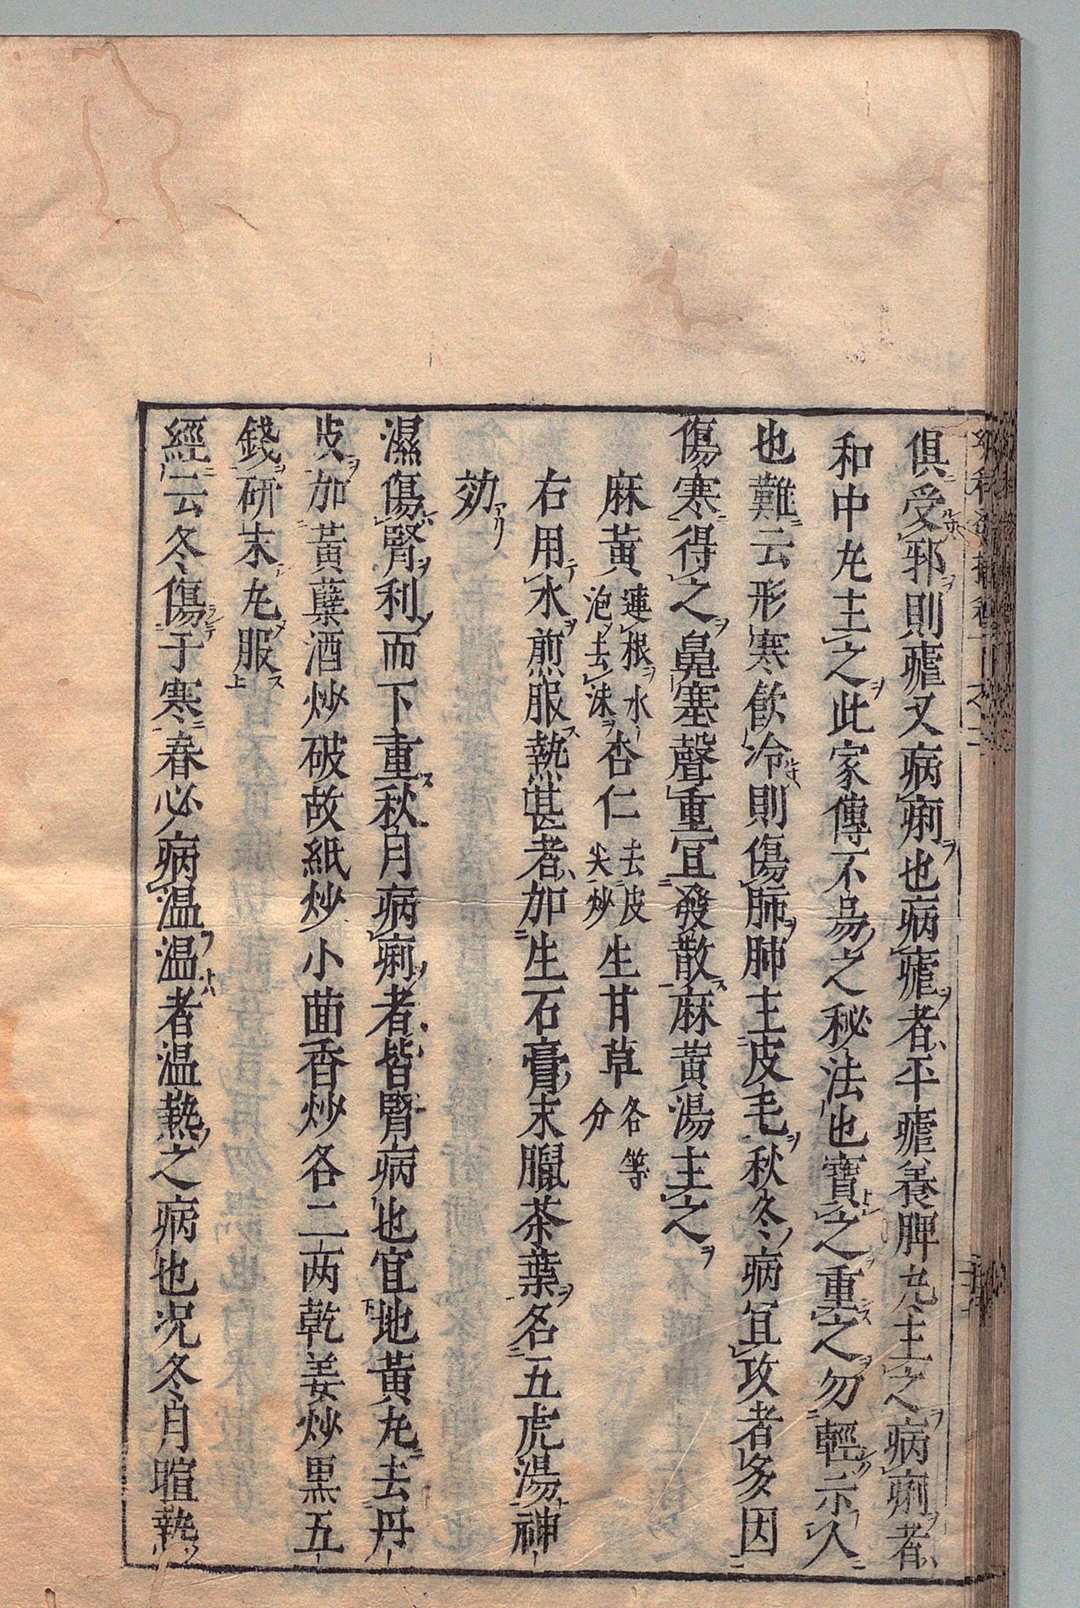 俱受邪則瘧又病痢也病瘧者平瘧養脾丸主之病痢者
和中丸主之此家傳不易之秘法也寶之重之勿輕示人
也難云形寒飲冷則傷肺肺主皮毛秋冬病宜攻者多因
傷寒得之鼻塞聲重宜發散麻黃湯主之
麻黃連根水泡去沫杏仁去皮尖炒生甘草各等分
右用水煎服熱甚者加生石膏末臘茶葉名五虎湯神
効
濕傷腎利而下重秋月病痢者皆腎病也宜地黃丸去丹
皮加黃蘗酒炒破故紙炒小茴香炒各二两乾姜炒黑五
錢研末丸服
經云冬傷于寒春必病温温者温熱之病也況冬月暄熱